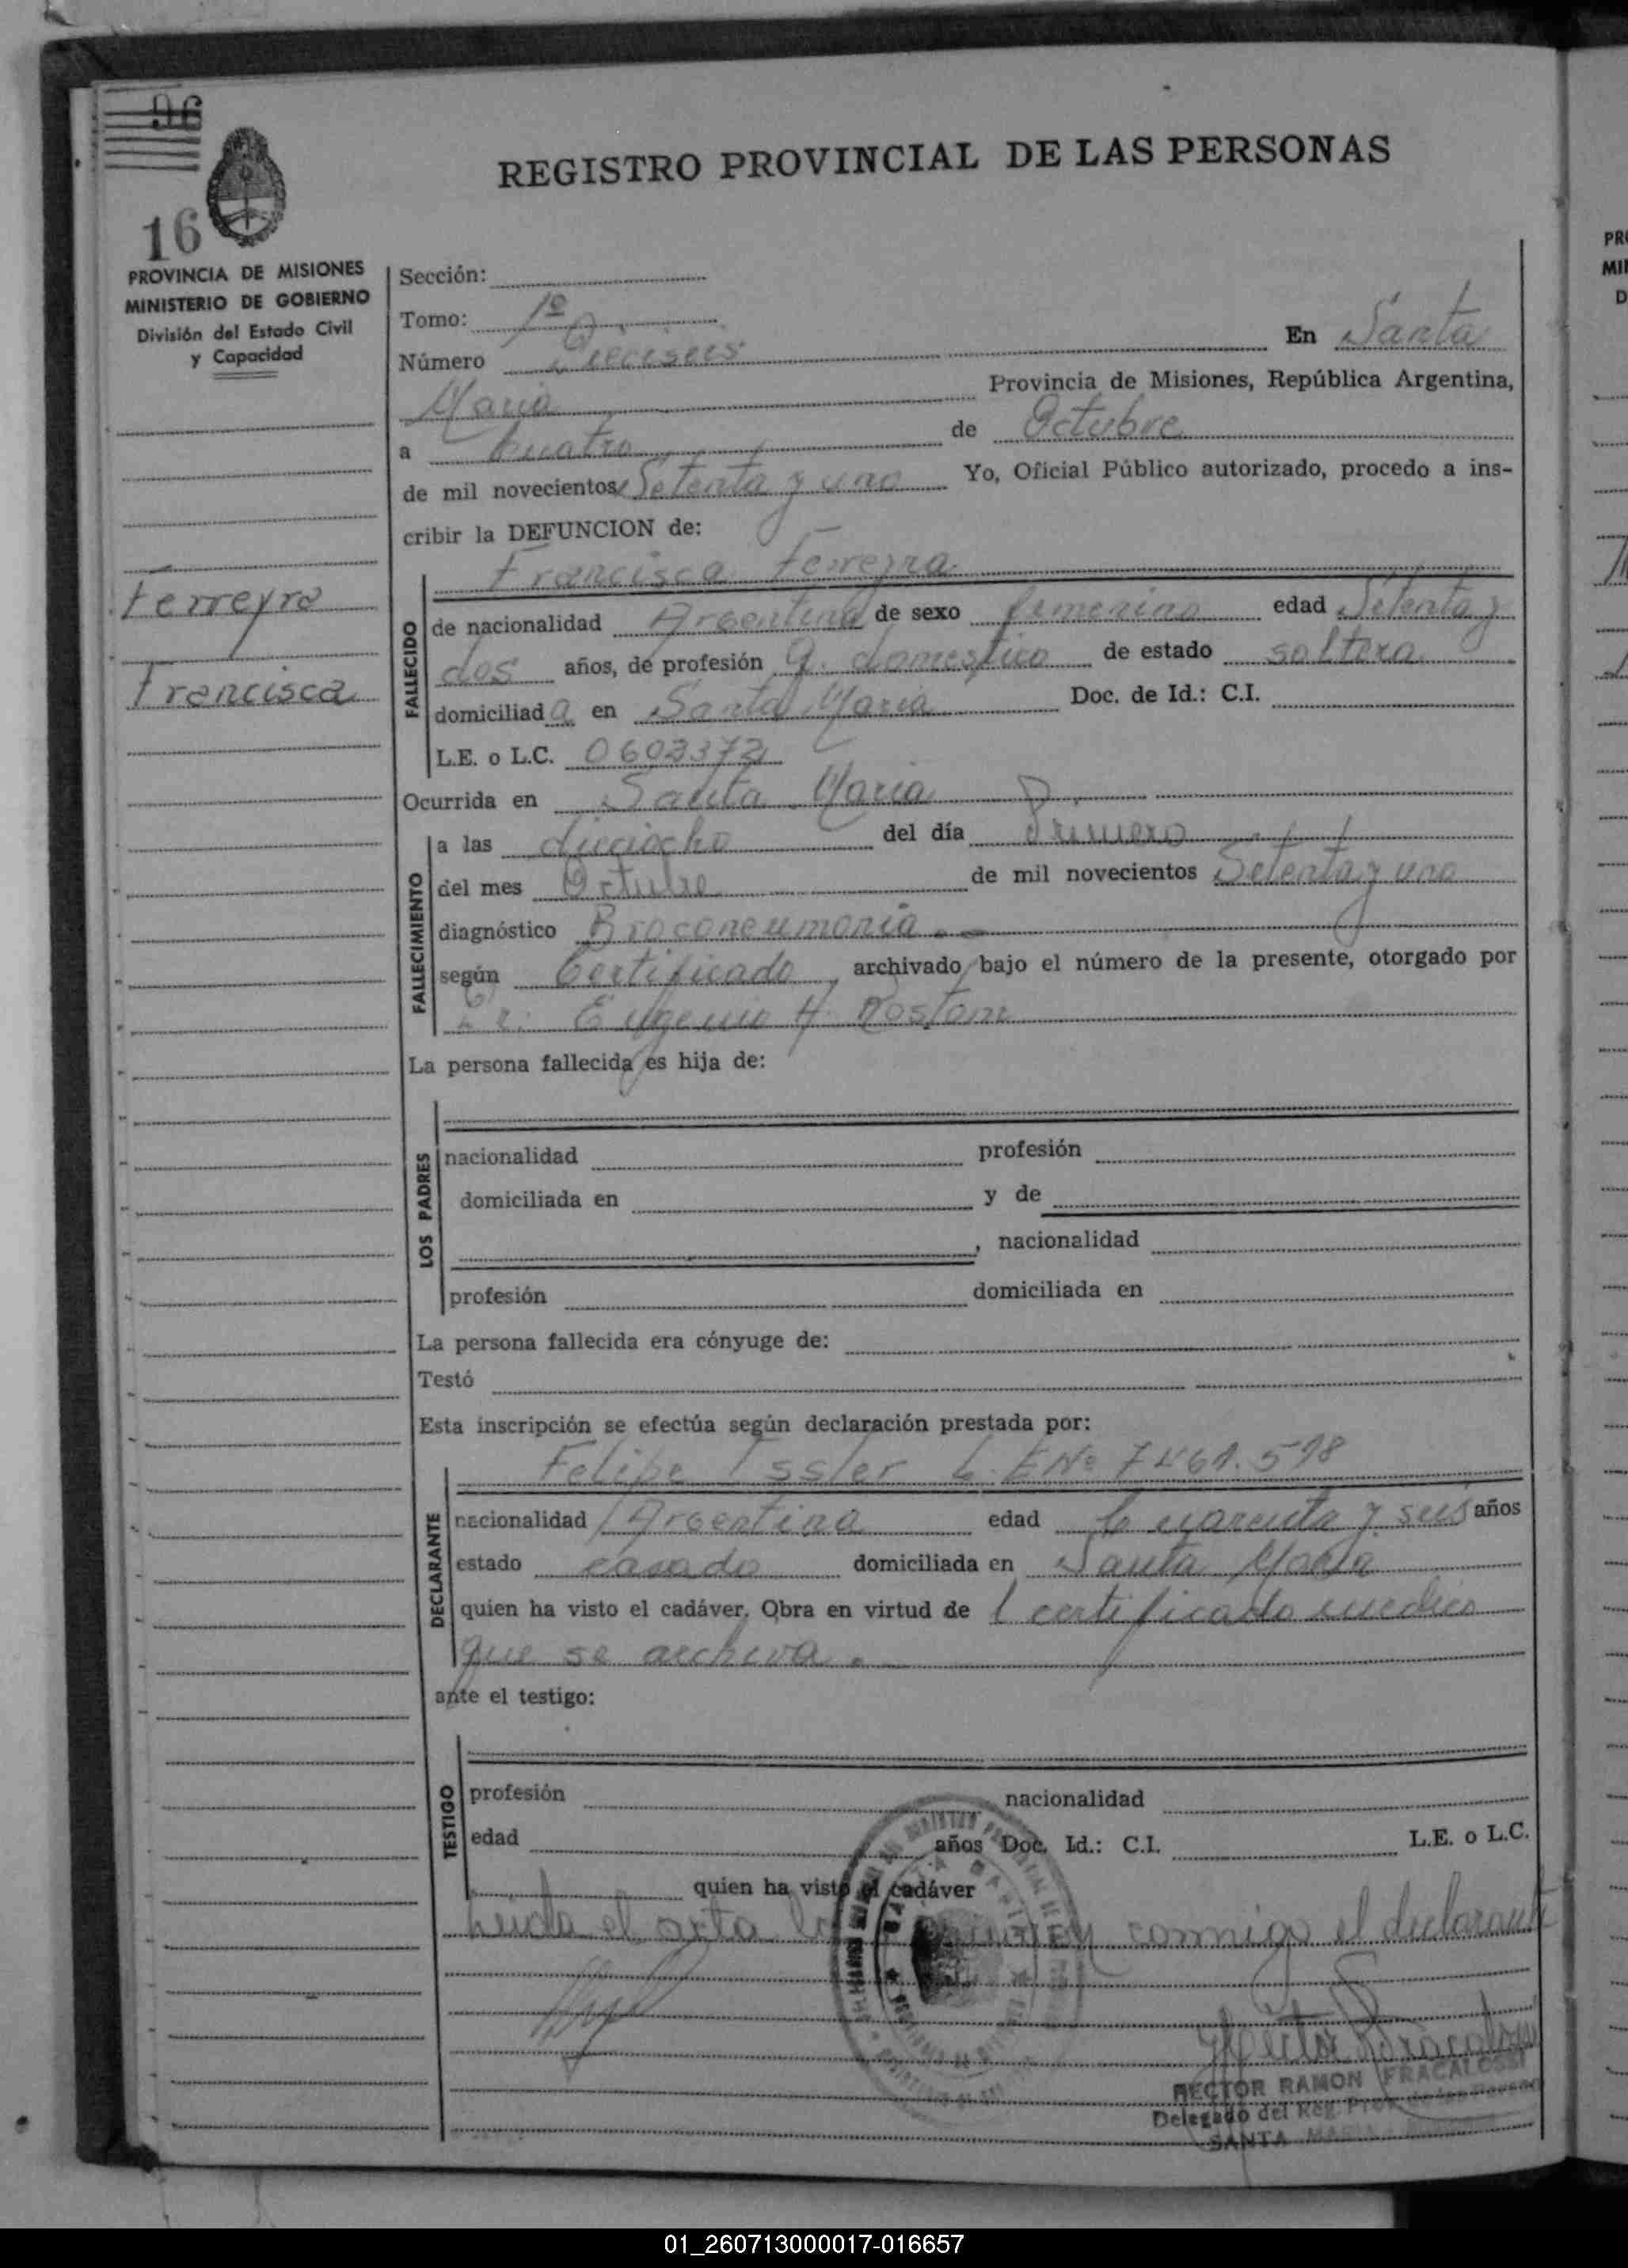 96
16
REGISTRO PROVINCIAL DE LAS PERSONAS
PROVINCIA DE MISIONES
MINISTERIO DE GOBIERNO
División del Estado Civil
y Capacidad
Ferreyra
Francisca
Sección:
Tomo: 1º
Número Dieciseis En Santa
Maria Provincia de Misiones, República Argentina,
a Cuatro de Octubre
de mil novecientos Setenta y uno Yo, Oficial Público autorizado, procedo a ins-
cribir la DEFUNCION de:
Francisca Ferreyra
FALLECIDO
de nacionalidad Argentina de sexo femenino edad Setenta y
dos años, de profesión q. domestico de estado soltera
domiciliad a en Santa Maria Doc. de Id.: C.I.
L.E. o L.C.
Ocurrida en Santa Maria
FALLECIMIENTO
a las dieciocho del día Primero
del mes Octubre de mil novecientos Setenta y uno
diagnóstico Broconeumonia
según Certificado archivado bajo el número de la presente, otorgado por
Dr. Eugenio H.
La persona fallecida es hija de:
LOS PADRES
nacionalidad profesión
domiciliada en y de
, nacionalidad
profesión domiciliada en
La persona fallecida era cónyuge de:
Testó
Esta inscripción se efectúa según declaración prestada por:
Felipe Issler L.E Nº 7461.518
DECLARANTE
nacionalidad Argentina edad Cuarenta y seis años
estado casado domiciliada en Santa Maria
quien ha visto el cadáver. Obra en virtud de l certificado medico
que se archiva.
ante el testigo:
TESTIGO
profesión nacionalidad
edad años Doc. Id.: C.I. L.E. o L.C.
quien ha visto el cadáver
Leida el acta la conmigo el declarante
HECTOR RAMON FRACALOSSI
Delegado del Reg. Prov. de las Personas
SANTA MARIA
01_260713000017-016657